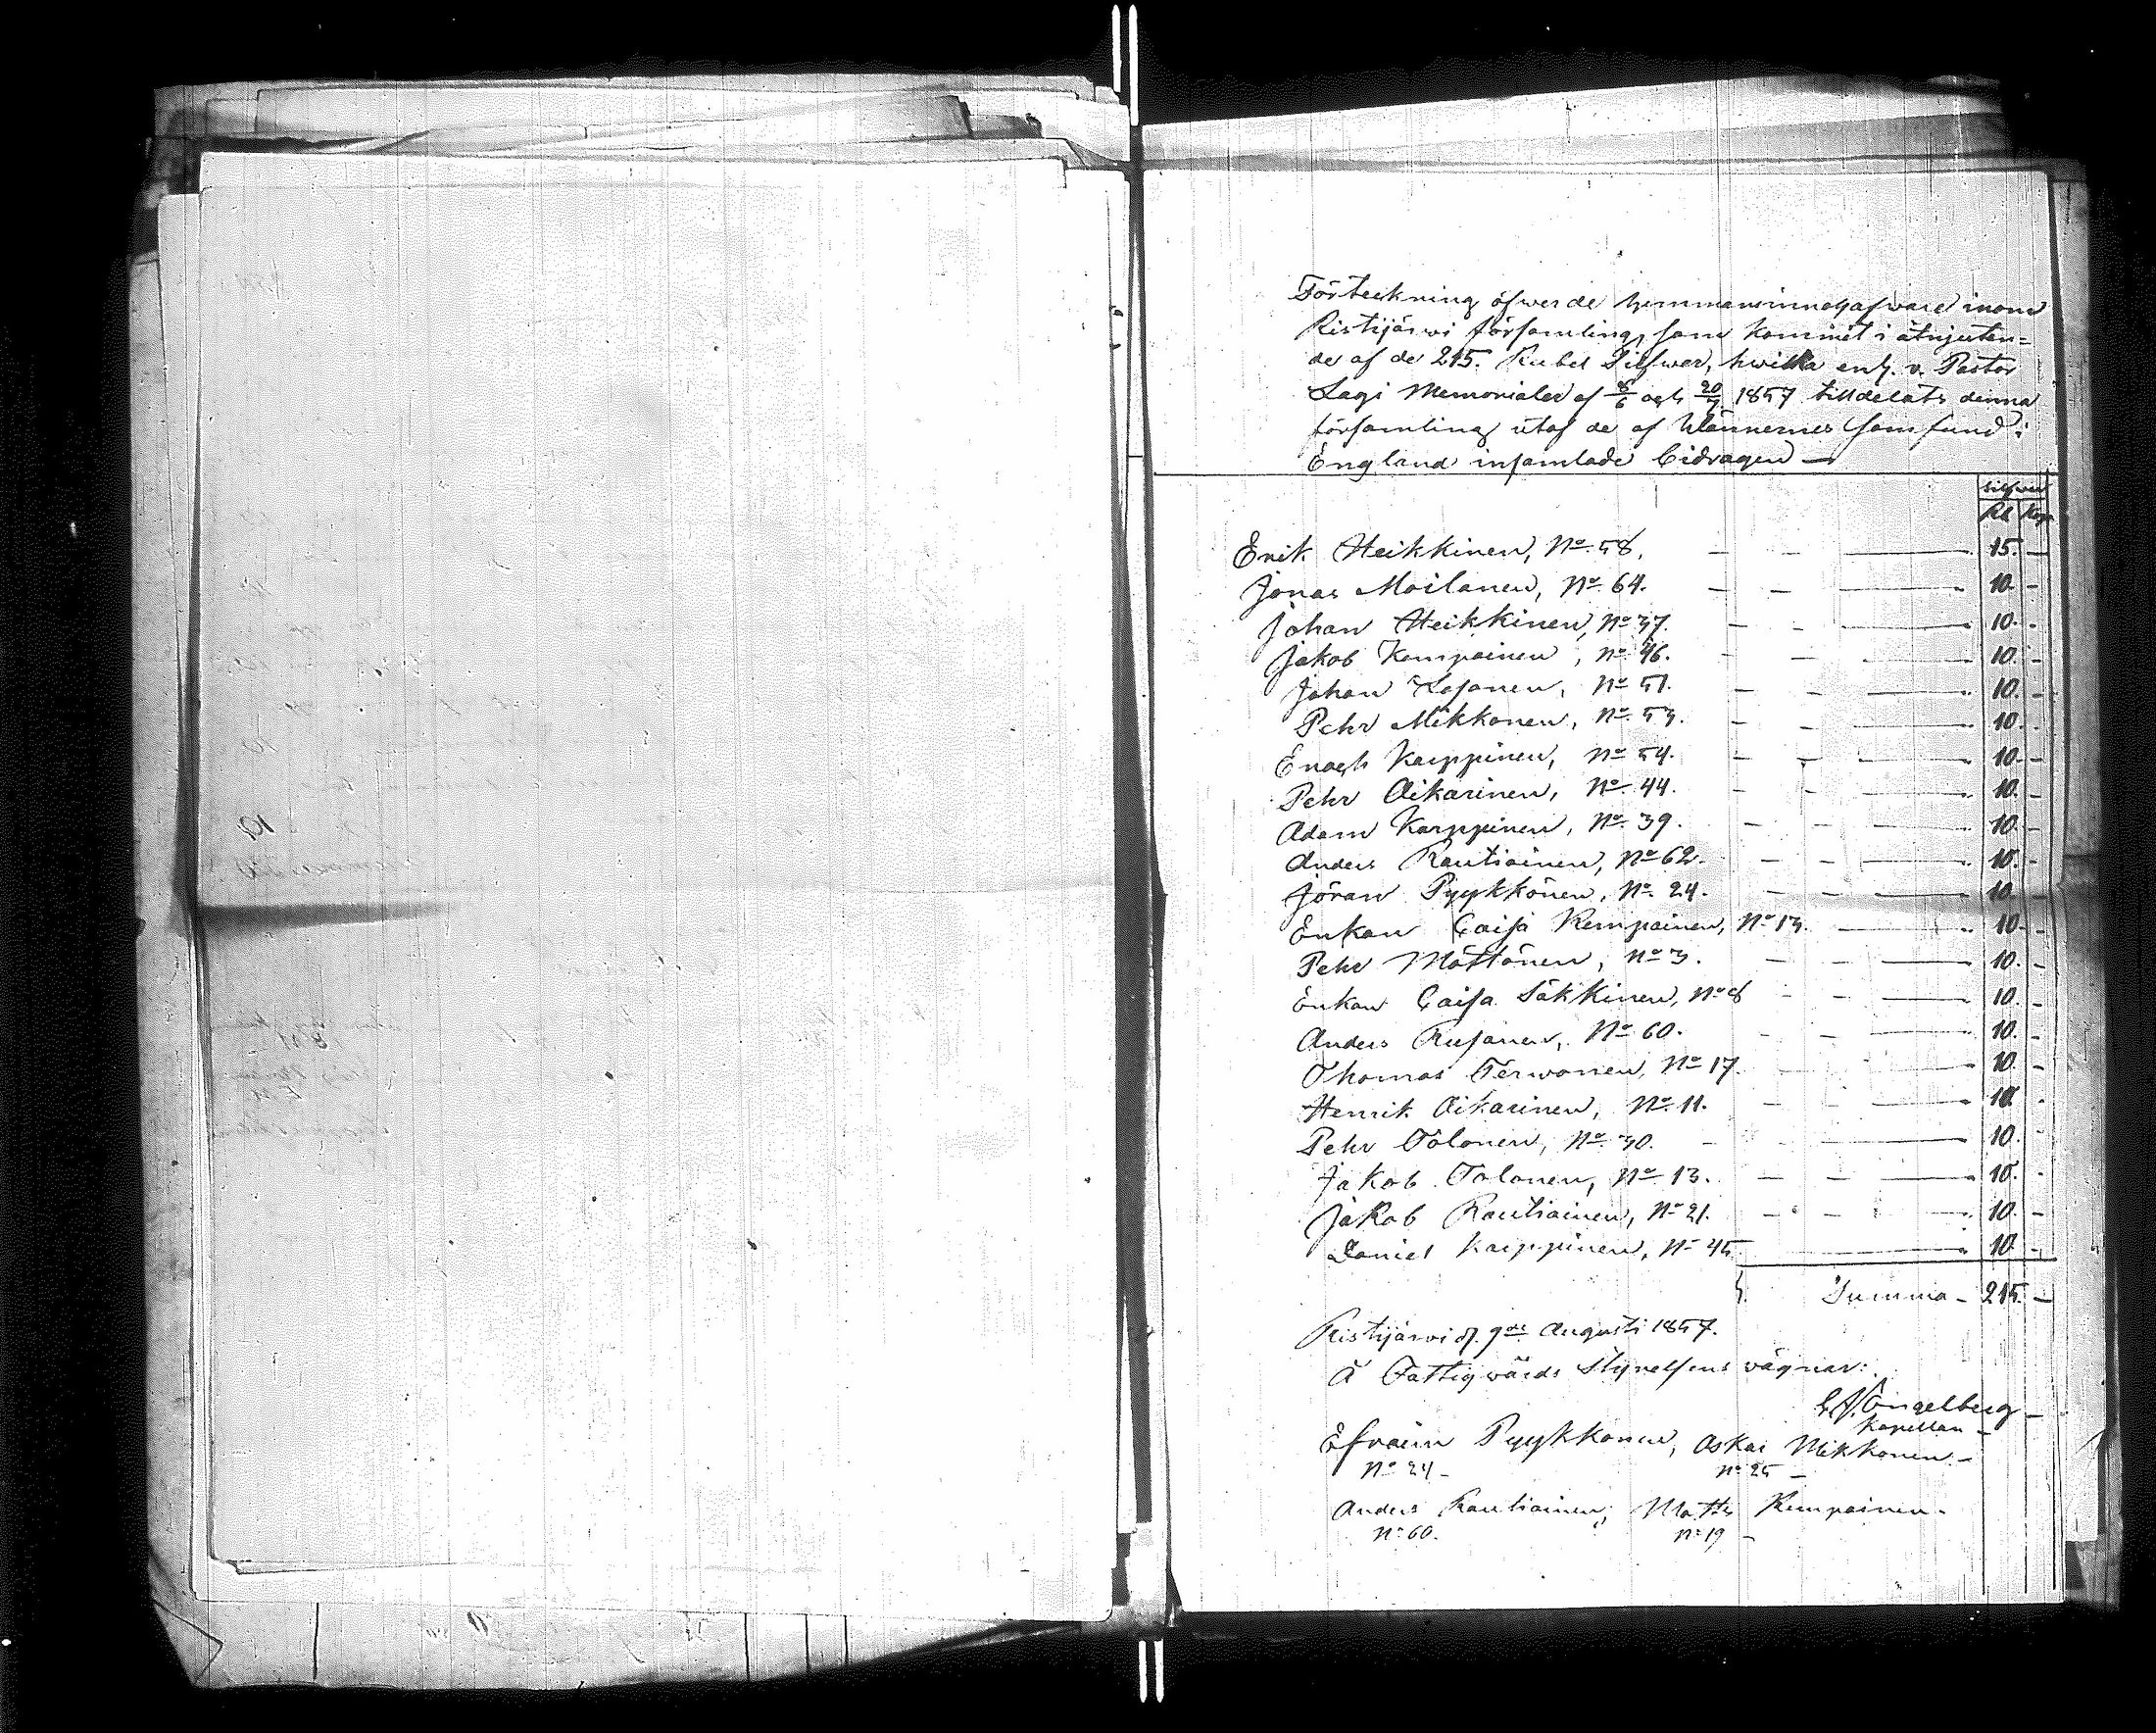 Förteckning öfwer de hemmansinnehafware inom
Ristijärwi församling, som kommit i åtnjutan=
de af de 215. Rubel Silfwer, hwilka enl. v. Pastor
Lagi Memorialer af 8/6 och 20/7 1857 tilldelats denna
församling utaf de af Wännernes Samfund i
England insamlade bidragen —
Silfwer
Rb Kop
Erik Heikkinen, No 58. — — — 15. —
Jonas Moilanen, No 64. — — — 10. —
Johan Heikkinen, No 37. — - — 10. -
Jakob Kempainen, No 46. - — — 10. -
Johan Kesonen, No 51. — - — 10. -
Pehr Mikkonen, No 53. — - — 10. -
Enoch Karppinen, No 54. — - — 10. -
Pehr Oikarinen, No 44. - - — 10. -
Adam Karppinen, No 39. — - — 10. -
Anders Rautiainen, No 62. — - — 10. -
Jöran Pyykkönen, No 24. - — — 10. -
Enkan Caisa Kempainen, No 13. — 10. -
Pehr Möttönen, No 3. — - — 10. -
Enkan Caisa Säkkinen, No 8 - - — 10. -
Anders Rusanen, No 60. - — — 10. -
Thomas Terwonen, No 17. - - — 10. -
Henrik Oikarinen, No 11. — — — 10. -
Pehr Tolonen, No 30. - - — 10. -
Jakob Tolonen, No 13. — — — 10. -
Jakob Rautiainen, No 21. — - — 10. -
Daniel Karppinen, No 45 — 10. -
S. Summa - 215. —
Ristijärwi d. 9de Augusti 1857.
Å Fattigwårds Styrelsens wägnar:
Engelberg
Kapellan
Efraim Pyykkönen, Oskar Mikkonen. -
No 24 - No 25 —
Anders Rautiainen, Matts Kempainen -
No 60. No 19 —